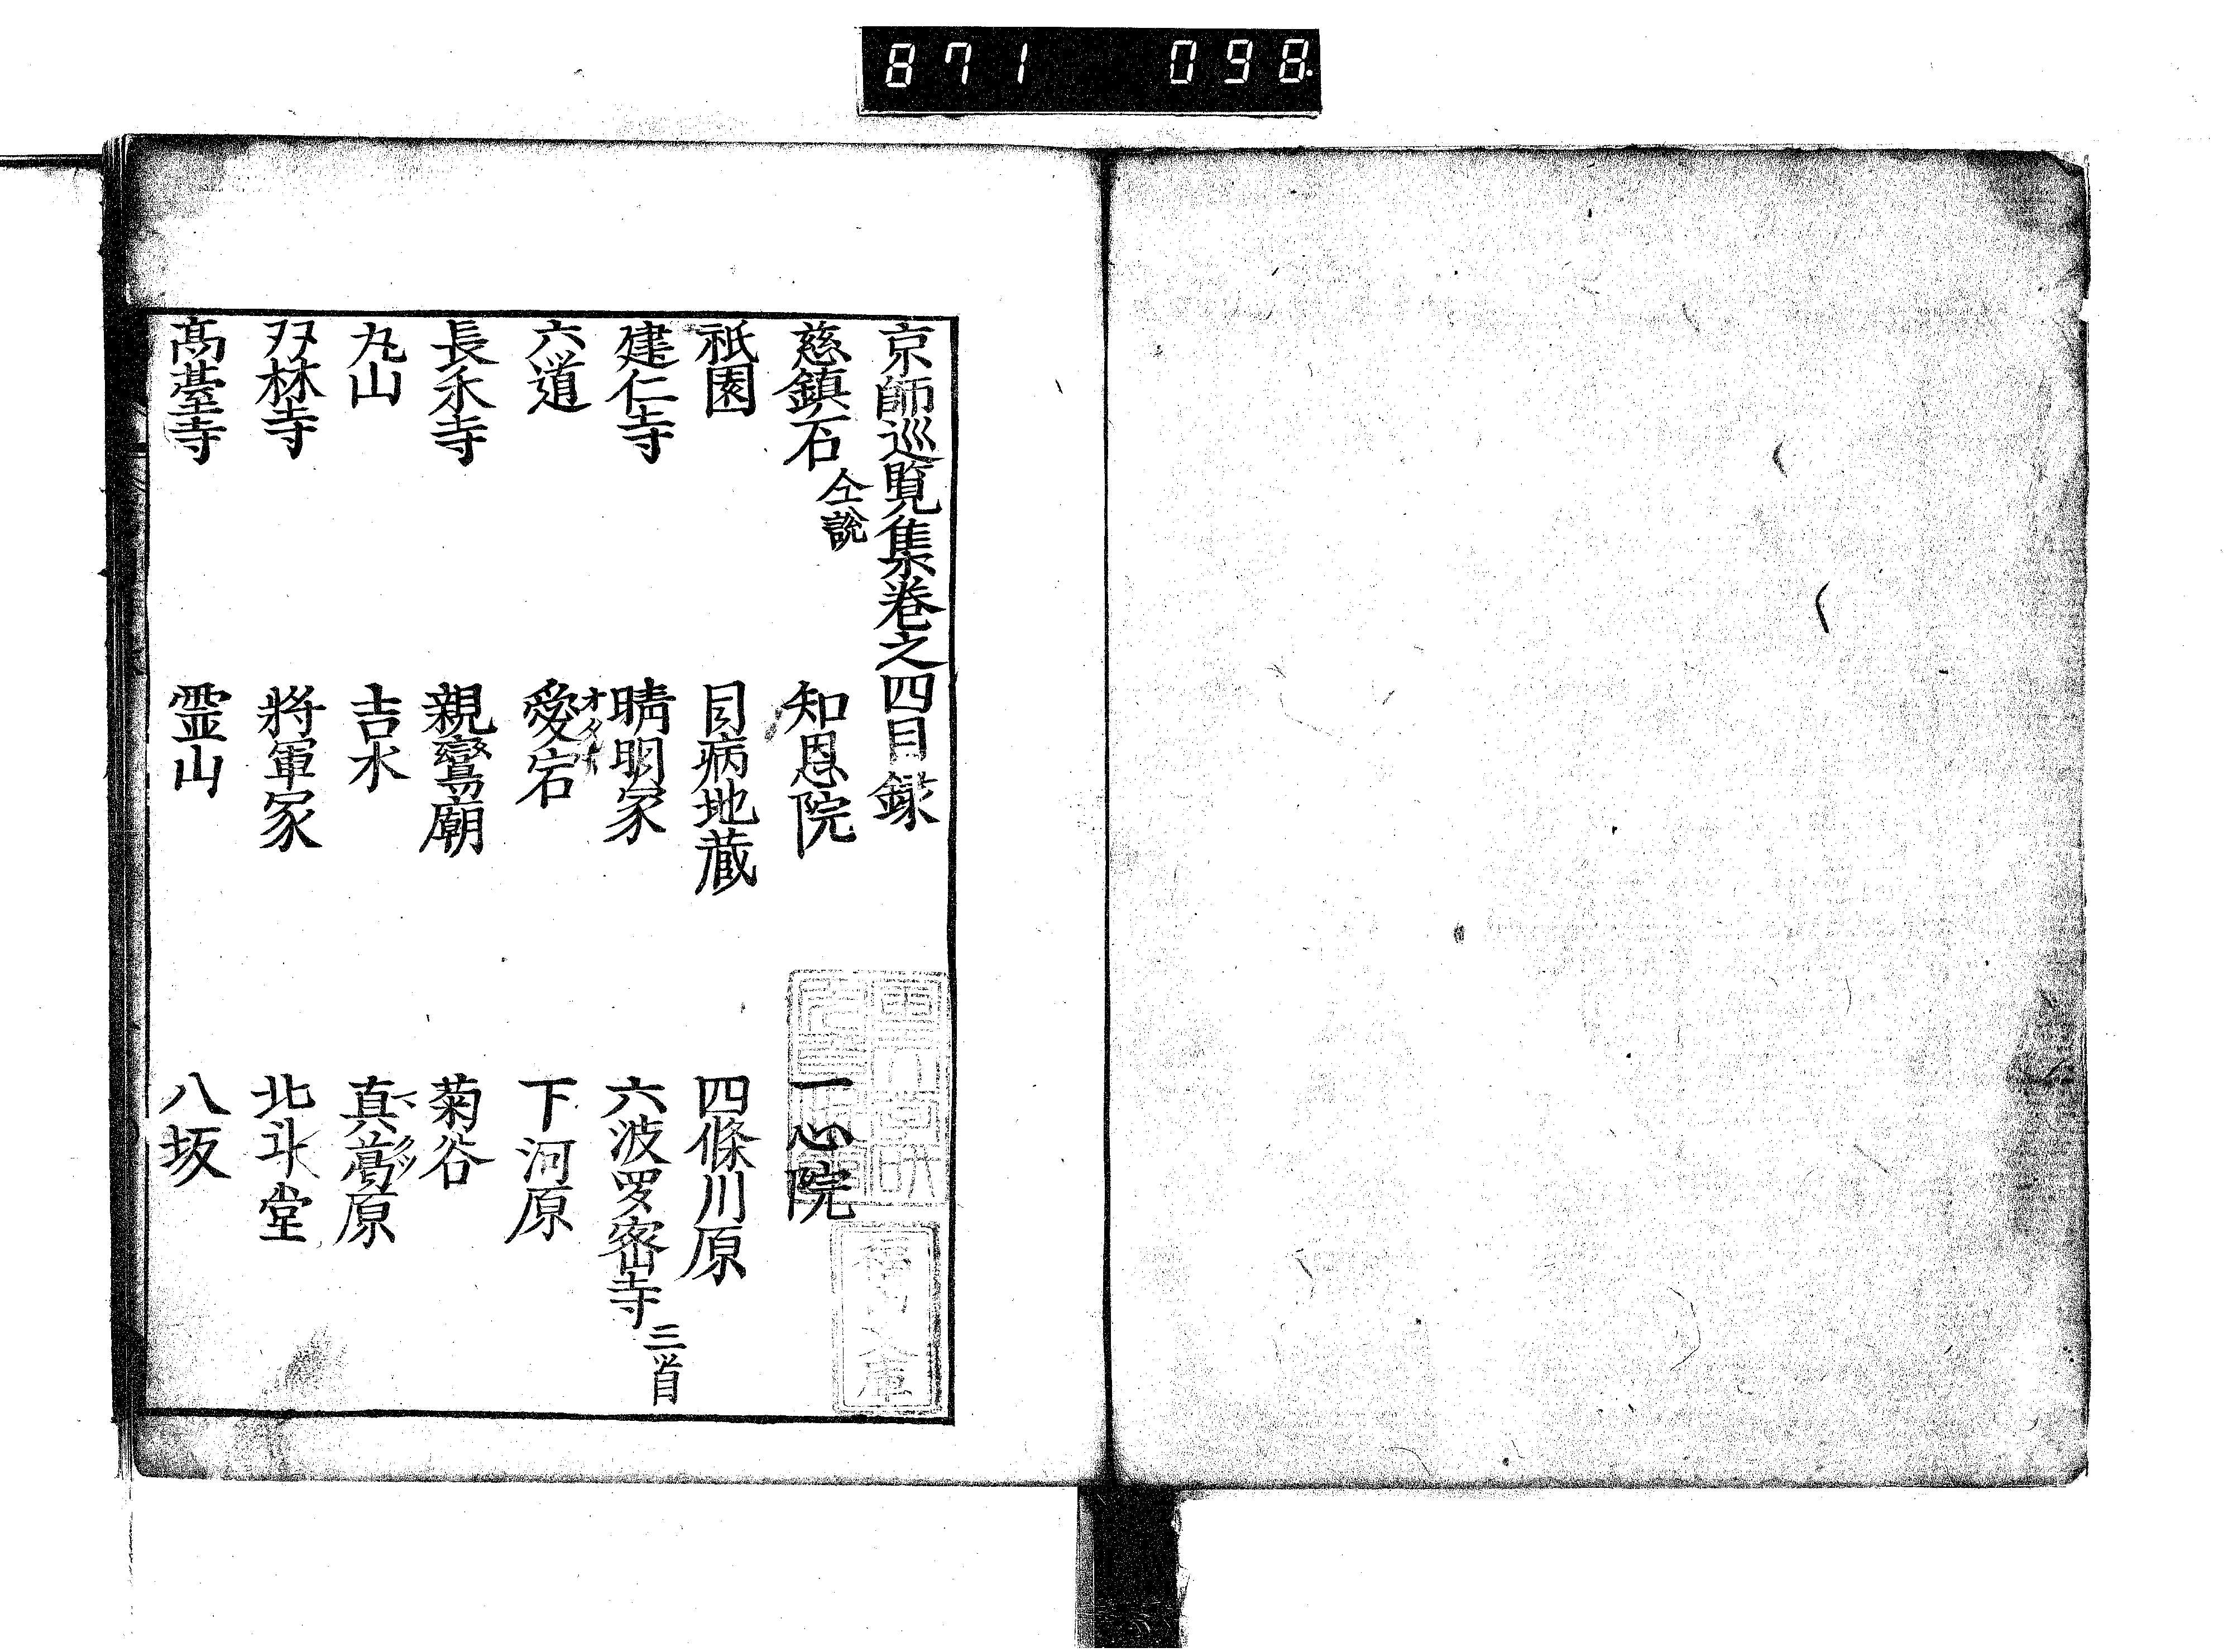 871 098
京師巡覧集卷之四目録
慈鎮石 仝説 知恩院 一心院
祇園 目病地蔵 四條川原
建仁寺 晴明冢 六波罗密寺 三首
六道 愛宕 オタギ 下河原
長永寺 親鸞廟 菊谷
丸山 吉水 真葛原
双林寺 将軍冢 北斗堂
髙臺寺 霊山 八坂